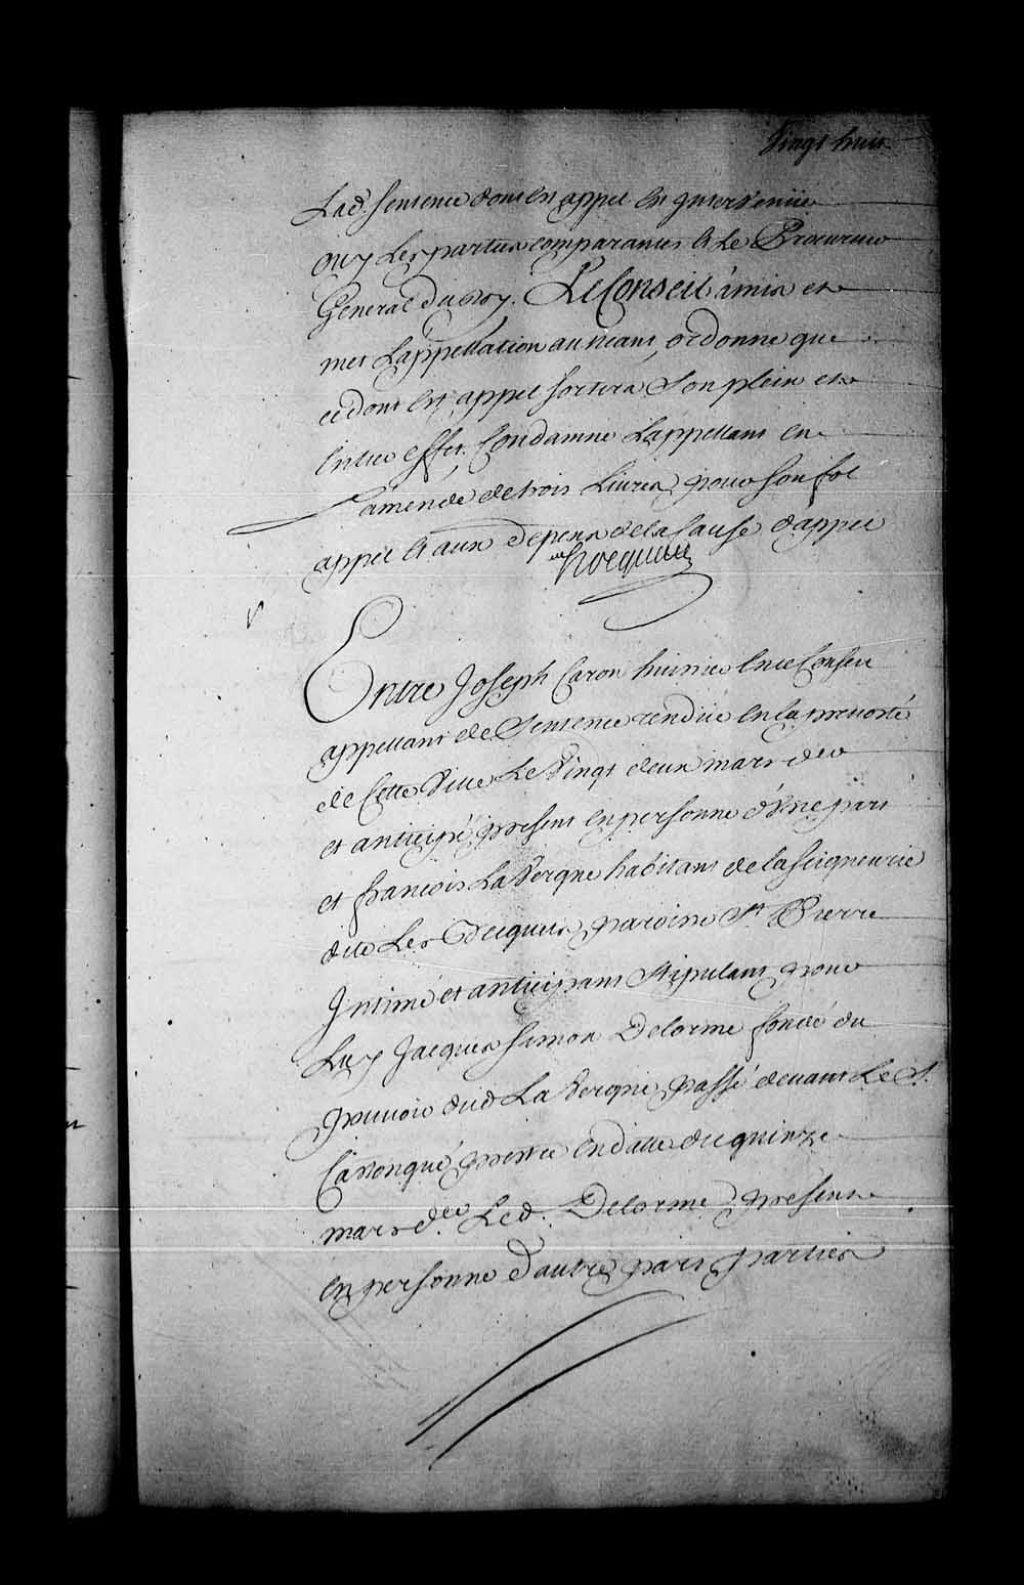 Vingt huit
Lad. sentence dont est appel est intervenüe
ouy Les parties comparantes et Le Procureur
General du Roy. Le Conseil a mis et
met L'appellation au neant, ordonne que
ce dont est appel sortira son plein et
Entier effet. Condamne L'appellant en
L'amende de trois Livres pour son fol
appel et aux depens de la Cause d'appel
hocquart
Entre Joseph Caron huissier en ce Conseil
appellant de Sentence rendüe en la prevosté
de Cette Ville Le Vingt deux mars der
et anticipé present en personne d'Une part
et francois La Vergne habitant de la seigneurie
dite Les Becquets paroisse St. Pierre
Intimé et anticipant Stipulant pour
Luy Jacques Simon Delorme fondé du
pouvoir dud. La Vergne passé devant Le S.
prestre en datte du quinze
mars der Led. Delorme present
en personne d'autre part parties